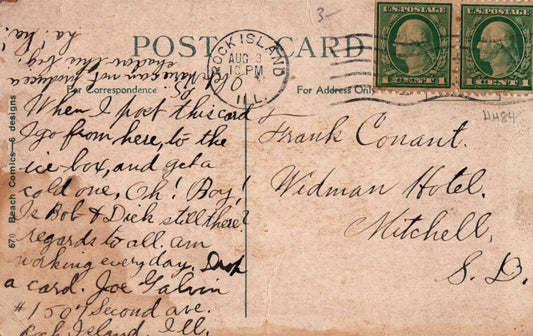 3-
POST CARD
U.S. POSTAGE
1 CENT 1
U.S. POSTAGE
1 CENT 1
ROCK ISLAND
AUG 3
PM
ILL.
For Correspondence
For Address Only
670 Beach Comics—6 designs
ha! ha!
can not produce a
shadow this big.
When I post this card
I go from here, to the
ice-box, and get a
cold one, Oh! Boy!
Is Bob & Dick still there?
regards to all. am
working every day. Drop
a card. Joe Galvin
Second ave.
Rock Island Ill.
HH84
Frank Conant.
Widman Hotel.
Mitchell,
S. D.